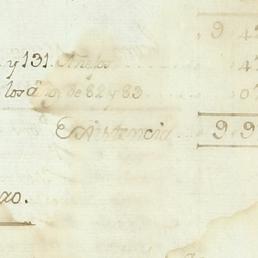 9 4
y 131. Años 4
los a.s de 82 y 83 0
Existencia 9 9
zo.